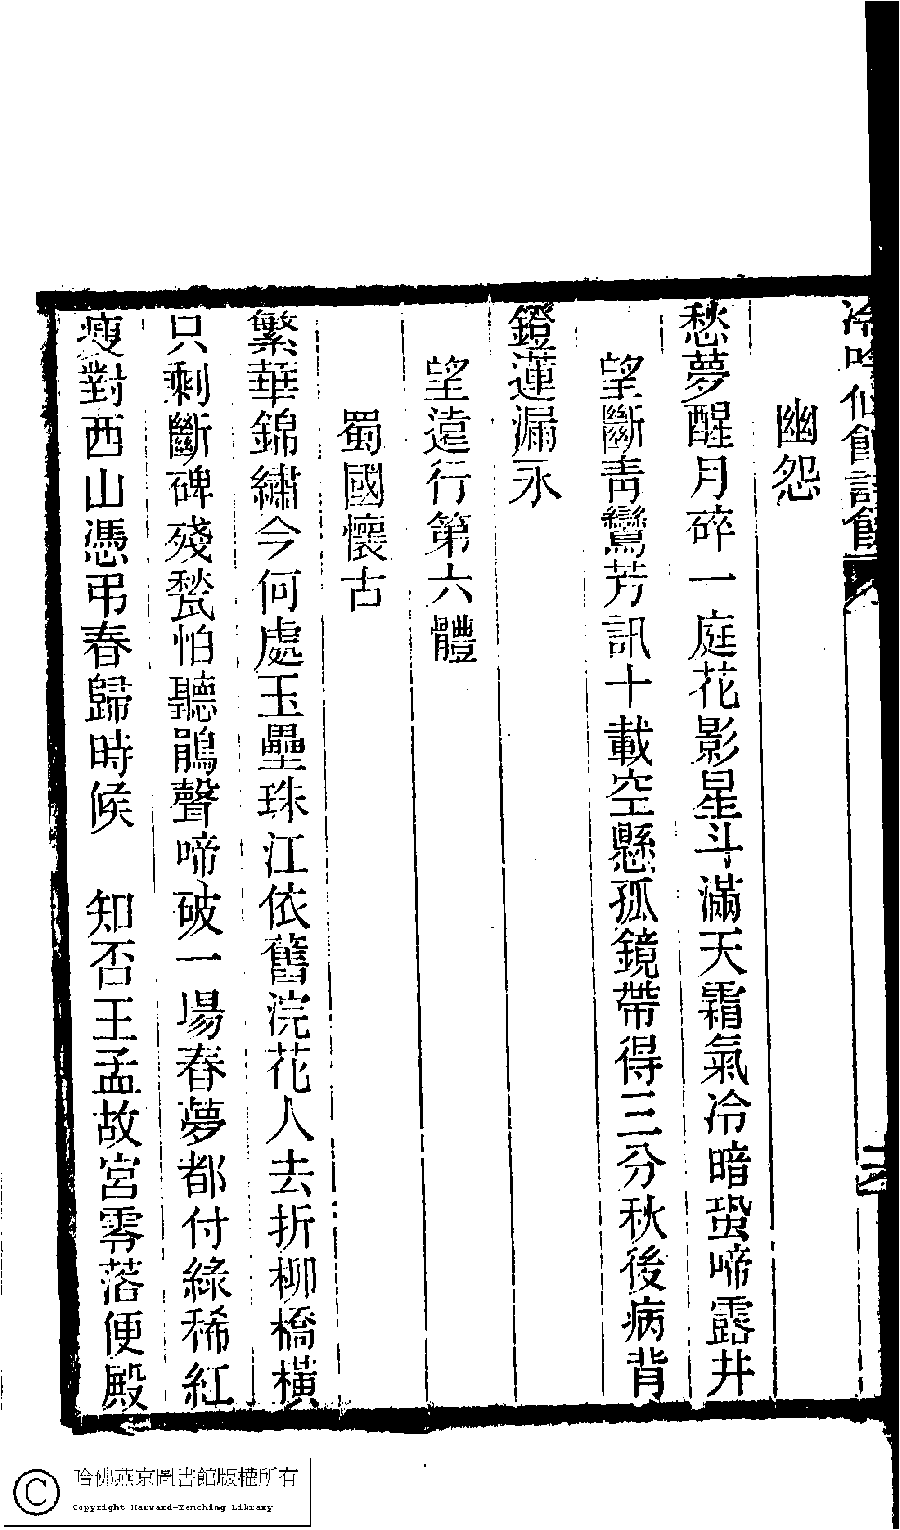 冷吟仙館詩餘
幽怨
愁夢醒月碎一庭花影星斗滿天霜氣冷暗蛩啼露井
望斷青鸞芳訊十載空懸孤鏡帶得三分秋後病背
鐙蓮漏永
望遠行第六體
蜀國懷古
繁華錦繡今何處玉壘珠江依舊浣花人去折柳橋橫
只剩斷碑殘甃怕聽鵑聲啼破一場春夢都付綠稀紅
瘦對西山憑弔春歸時候 知否王孟故宮零落便殿
哈佛燕京圖書館版權所有
Copyright Harvard-Yenching Library